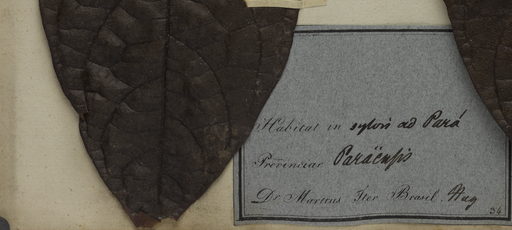 Habitat in sylvis ad Pará
Provinciae Paraënsis
Dr. Martius Iter Brasil. Aug
34